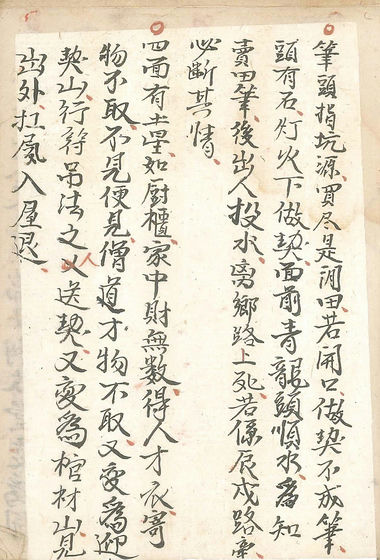 筆頭指坑源買尽是润田若開口做契不成筆
頭有石灯火下做契面前青龍頭順水為知
賣田筆後出人投水离鄉路上死若係辰戌路
必斷其情
四面有土星如厨櫃家中財無數得人才衣寄
物不取不見便見僧道才物不取又变為迎
契山行符吊法之人送契又变為棺材山見
出外扛屍入屋退